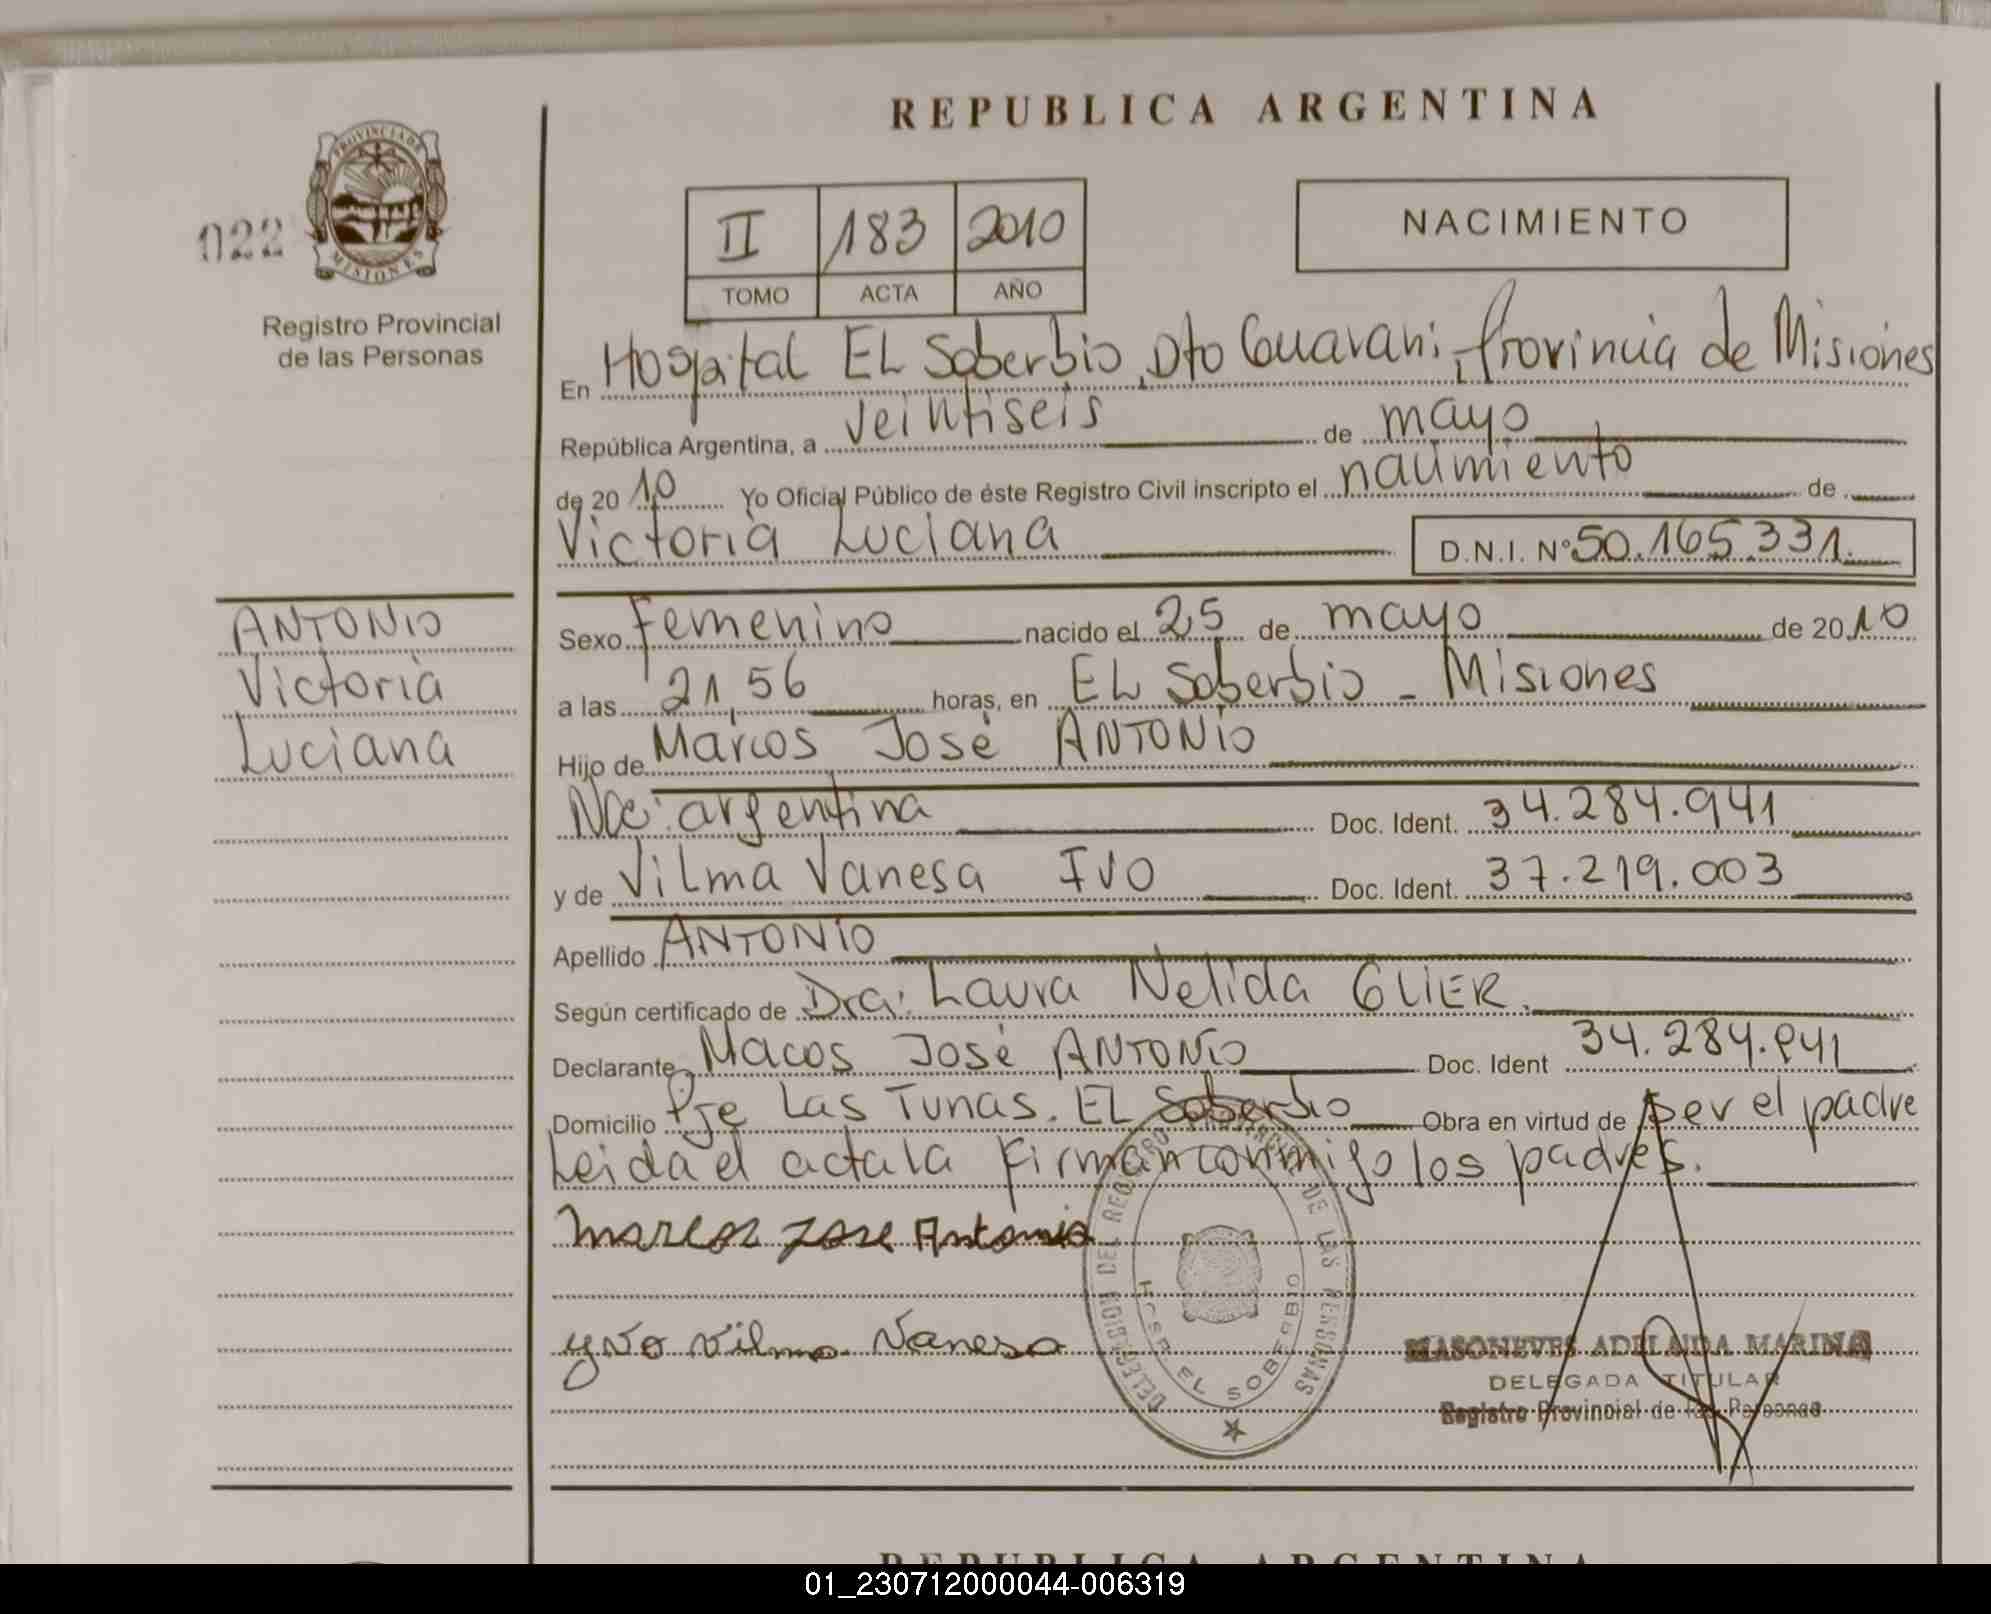 REPUBLICA ARGENTINA
PROVINCIA DE
MISIONES
022
Registro Provincial
de las Personas
II 183 2010
TOMO ACTA AÑO
NACIMIENTO
En Hospital EL Soberbio, Dto Guarani, Provincia de Misiones
República Argentina, a veintiseis de mayo
de 2010 Yo Oficial Público de éste Registro Civil inscripto el nacimiento de
Victoria Luciana D.N.I. Nº 50.165.331.
ANTONIO
Victoria
Luciana
Sexo Femenino nacido el 25 de mayo de 2010
a las 21,56 horas, en EL Soberbio - Misiones
Hijo de Marcos José ANTONIO
Nac: argentina Doc. Ident. 34.284.941
y de Vilma Vanesa IVO Doc. Ident. 37.219.003
Apellido ANTONIO
Según certificado de Dra: Laura Nelida GLIER.
Declarante Macos José ANTONIO Doc. Ident 34.284.941
Domicilio Pje Las Tunas. EL Soberbio Obra en virtud de ser el padre
Leida el acta la firman conmigo los padres.
marcos jose Antonio
yvo vilma Vanesa
DELEGACION DEL REGISTRO PROVINCIAL DE LAS PERSONAS
HOSP. EL SOBERBIO
MASONEVES ADELAIDA MARINA
DELEGADA TITULAR
Registro Provincial de las Personas
REPUBLICA ARGENTINA
01_230712000044-006319